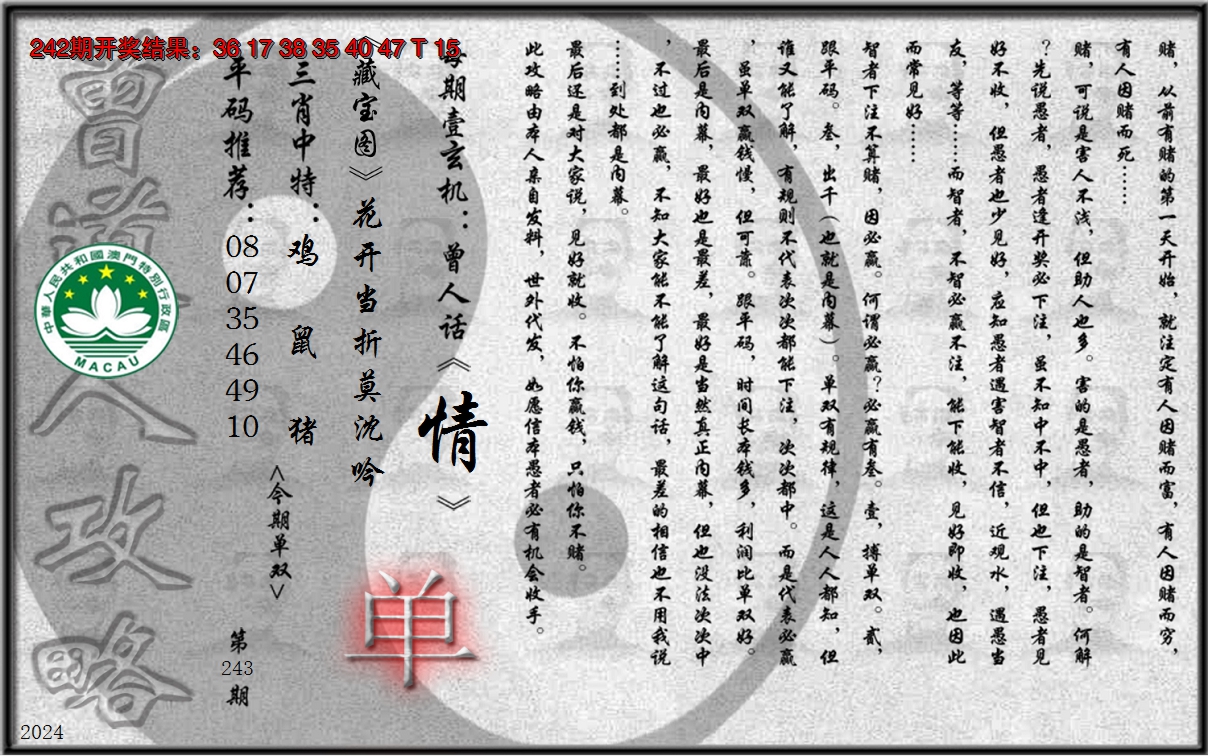 242期开奖结果：36 17 38 35 40 47 T 15
赌，从前有赌的第一天开始，就注定有人因赌而富，有人因赌而穷，
有人因赌而死……
赌，可说是害人不浅，但助人也多。害的是愚者，助的是智者。何解
？先说愚者，愚者逢开奖必下注，虽不知中不中，但也下注，愚者见
好不收，但愚者也少见好，应知愚者遇害智者不信，近观水，遇愚当
友，等等……而智者，不智必赢不注，能下能收，见好即收，也因此
而常见好……
智者下注不算赌，因必赢。何谓必赢？必赢有叁。壹，搏单双。贰，
跟平码。叁，出千（也就是内幕）。单双有规律，这是人人都知，但
谁又能了解，有规则不代表次次都能下注，次次都中。而是代表必赢
，虽单双赢钱慢，但可靠。跟平码，时间长本钱多，利润比单双好。
最后是内幕，最好也是最差，最好是当然真正内幕，但也没法次次中
，不过也必赢，不知大家能不能了解这句话，最差的相信也不用我说
……到处都是内幕。
最后还是对大家说，见好就收。不怕你赢钱，只怕你不赌。
此攻略由本人亲自发料，世外代发，如愿信本愚者必有机会收手。
每期壹玄机：曾人话《情》
《藏宝图》花开当折莫沈吟
单
三肖中特：鸡 鼠 猪
<今期单双>
平码推荐：
08
07
35
46
49
10
第
243
期
曾道人攻略
中華人民共和國澳門特別行政區
MACAU
2024